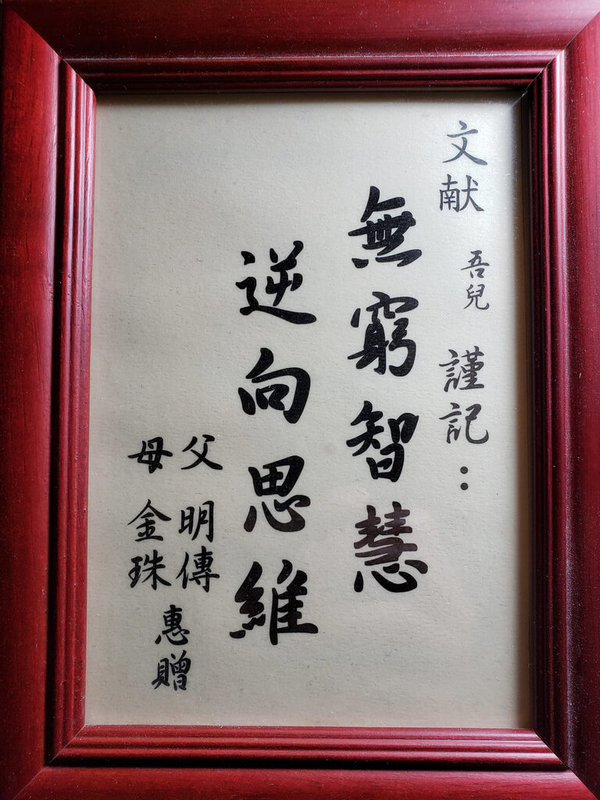 文献 吾兒 謹記：
無窮智慧
逆向思維
父 明傳
母 金珠
惠贈